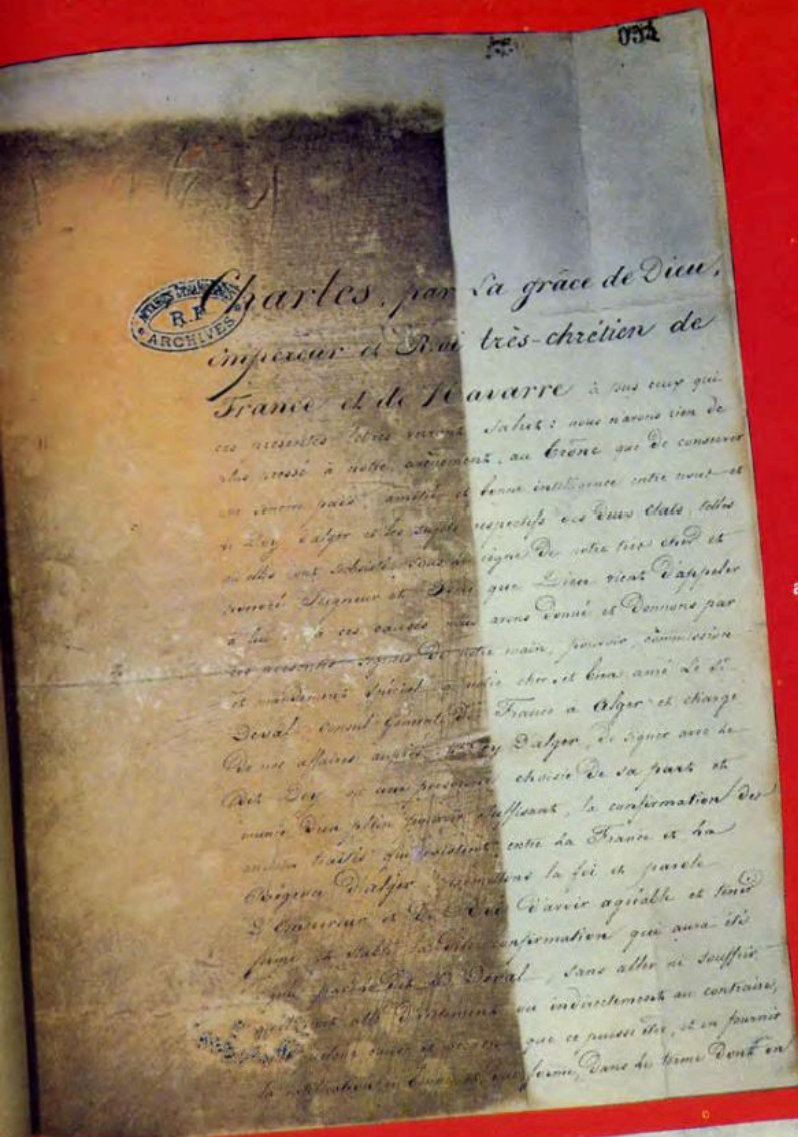 034
R.F.
ARCHIVES
Charles, par La grâce de Dieu,
empereur et Roi très-chrétien de
France et de Navarre à tous ceux qui
ces presentes lettres verront Salut: nous n'avons rien de
plus pressé à notre avènement au trône que De conserver
une sincere paix amitié et bonne intelligence entre nous et
le Dey D'alger et les sujets respectifs des Deux états, telles
qu'elles ont subsisté sous le règne De notre très cher et
honoré Seigneur et que Dieu vient D'appeler
à lui à ces causes nous avons Donné et Donnons par
ces presentes signées De notre main, pouvoir, commission
et mandement spécial à notre cher et bien amé Le Sr.
Deval Consul Général De France à Alger et chargé
De nos affaires auprès Dey D'alger, De signer avec Le
Dit Dey ou une personne choisie De sa part et
munie D'un plein pouvoir suffisant, la confirmation Des
anciens traités qui existent entre La France et La
Régence D'alger promettons la foi et parole
D'Empereur et De Roi D'avoir agréable et tenir
ferme et stable la Dite confirmation qui aura été
Deval, sans aller ni souffrir
qu'il soit allé Directement ou indirectement au contraire,
que ce puisse être, et en fournir
la ratification en forme, Dans Le terme Dont on